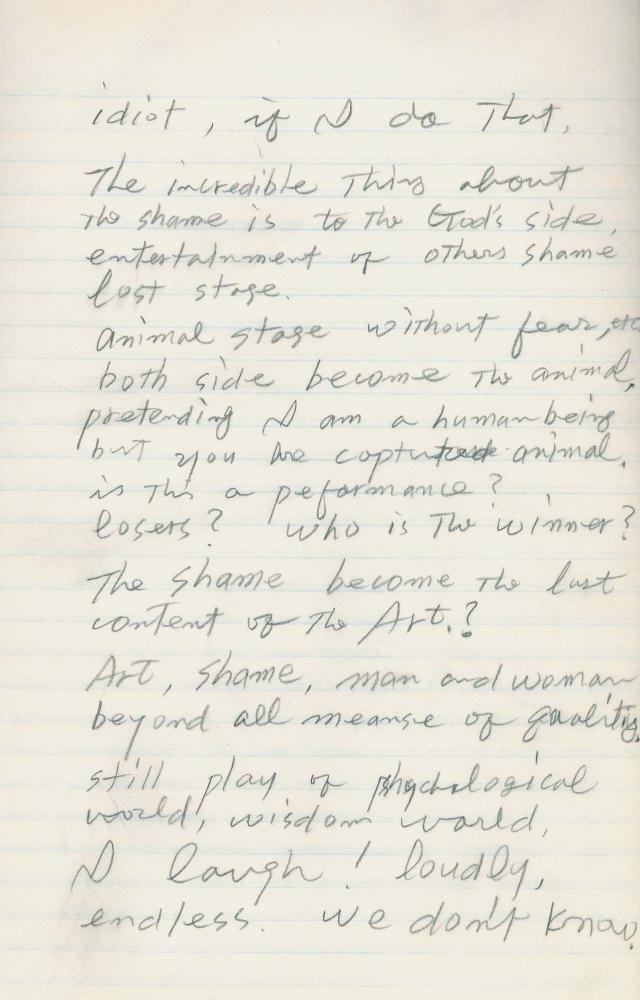 idiot, if I do That.
The incredible Thing about
The shame is to The God's side,
entertainment of others shame
lost stage.
animal stage without fear, etc
both side become The animal,
pretending I am a human being
but you are captured animal.
is This a peformance?
losers? who is The winner?
The shame become The last
content of The Art.?
Art, shame, man and woman
beyond all meanse of
still play of phychological
world, wisdom world,
I laugh! loudly,
endless. we don't know.